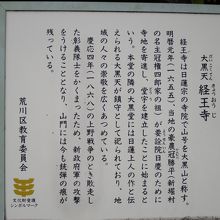 大黒天 経王寺
きょうおうじ
経王寺は日蓮宗の寺院で山号を大黒山と称す。
明暦元年(一六五五)、当地の豪農冠勝平(新堀村
の名主冠権四郎家の祖)が要詮院日慶のために
寺地を寄進し、堂宇を建立したことに始まると
いう。本堂の隣の大黒堂には日蓮上人の作と伝
えられる大黒天が鎮守として祀られており、地
域の人々の崇敬を広くあつめている。
慶応四年(一八六八)の上野戦争のとき敗走し
た彰義隊士をかくまったため、新政府軍の攻撃
をうけることとなり、山門には今も銃弾の痕が
残っている。
荒川区教育委員会
文化財愛護
シンボルマーク